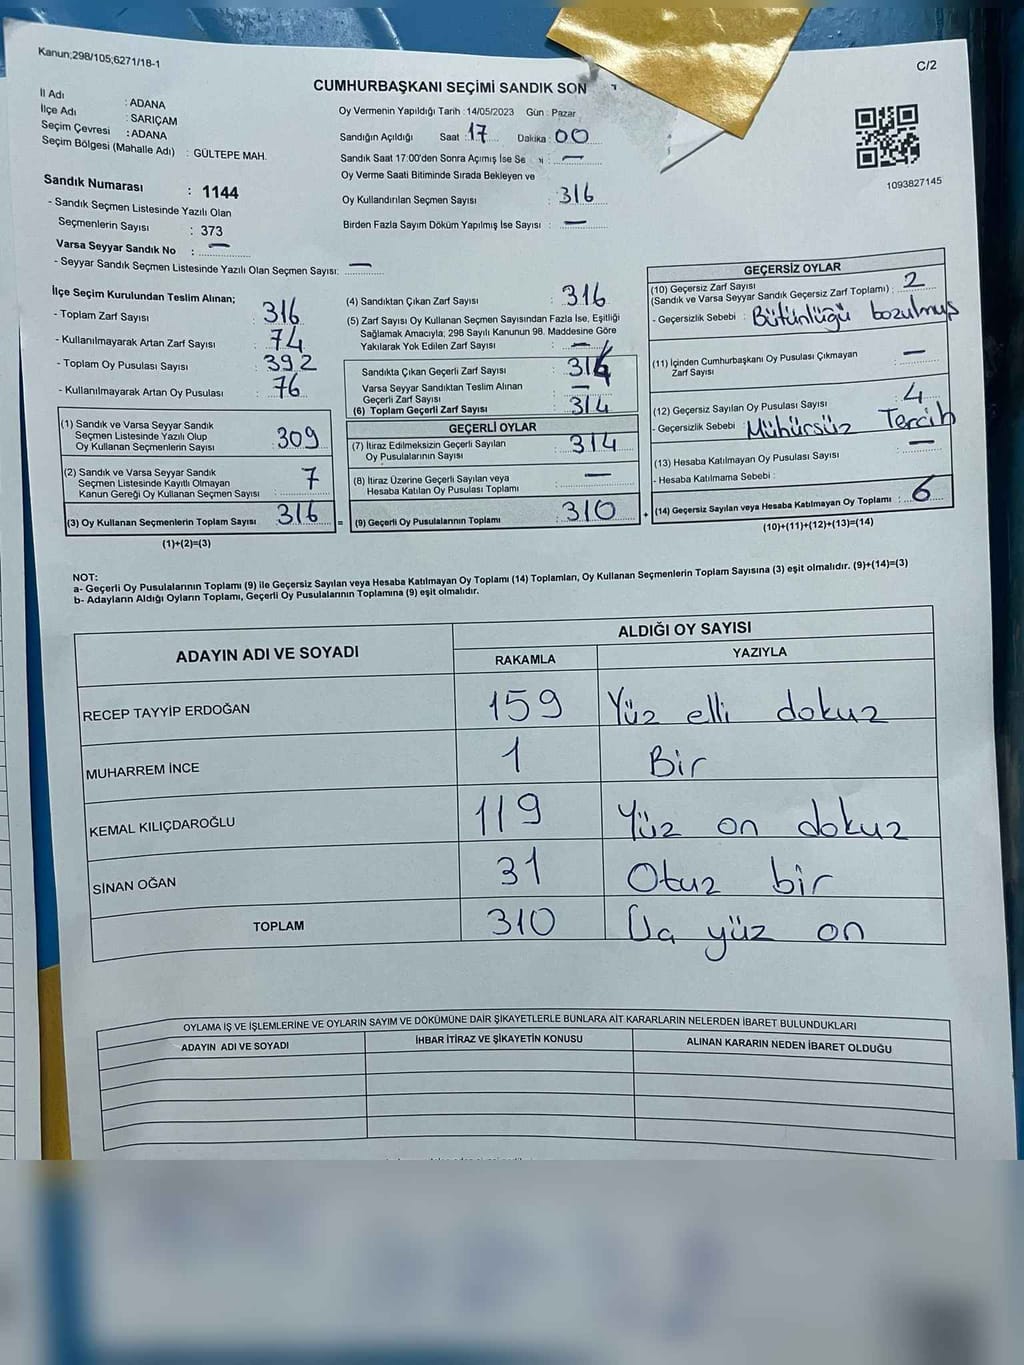 Kanun;298/105;6271/18-1
C/2
CUMHURBAŞKANI SEÇİMİ SANDIK SON
İl Adı : ADANA
İlçe Adı : SARIÇAM
Seçim Çevresi : ADANA
Seçim Bölgesi (Mahalle Adı) : GÜLTEPE MAH.
Oy Vermenin Yapıldığı Tarih : 14/05/2023 Gün : Pazar
Sandığın Açıldığı Saat : 17 Dakika : 00
Sandık Saat 17:00'den Sonra Açımış İse Se : —
Oy Verme Saati Bitiminde Sırada Bekleyen ve
Oy Kullandırılan Seçmen Sayısı : 316
Birden Fazla Sayım Döküm Yapılmış İse Sayısı : —
1093827145
Sandık Numarası : 1144
- Sandık Seçmen Listesinde Yazılı Olan
Seçmenlerin Sayısı : 373
Varsa Seyyar Sandık No : —
- Seyyar Sandık Seçmen Listesinde Yazılı Olan Seçmen Sayısı: —
İlçe Seçim Kurulundan Teslim Alınan;
- Toplam Zarf Sayısı : 316
- Kullanılmayarak Artan Zarf Sayısı : 74
- Toplam Oy Pusulası Sayısı : 392
- Kullanılmayarak Artan Oy Pusulası : 76
(1) Sandık ve Varsa Seyyar Sandık
Seçmen Listesinde Yazılı Olup
Oy Kullanan Seçmenlerin Sayısı : 309
(2) Sandık ve Varsa Seyyar Sandık
Seçmen Listesinde Kayıtlı Olmayan
Kanun Gereği Oy Kullanan Seçmen Sayısı : 7
(3) Oy Kullanan Seçmenlerin Toplam Sayısı : 316 =
(1)+(2)=(3)
(4) Sandıktan Çıkan Zarf Sayısı : 316
(5) Zarf Sayısı Oy Kullanan Seçmen Sayısından Fazla İse, Eşitliği
Sağlamak Amacıyla; 298 Sayılı Kanunun 98. Maddesine Göre
Yakılarak Yok Edilen Zarf Sayısı : —
Sandıkta Çıkan Geçerli Zarf Sayısı : 314
Varsa Seyyar Sandıktan Teslim Alınan
Geçerli Zarf Sayısı : —
(6) Toplam Geçerli Zarf Sayısı : 314
GEÇERLİ OYLAR
(7) İtiraz Edilmeksizin Geçerli Sayılan
Oy Pusulalarının Sayısı : 314
(8) İtiraz Üzerine Geçerli Sayılan veya
Hesaba Katılan Oy Pusulası Toplamı : —
(9) Geçerli Oy Pusulalarının Toplamı : 310 +
GEÇERSİZ OYLAR
(10) Geçersiz Zarf Sayısı
(Sandık ve Varsa Seyyar Sandık Geçersiz Zarf Toplamı) : 2
- Geçersizlik Sebebi : Bütünlüğü bozulmuş
(11) İçinden Cumhurbaşkanı Oy Pusulası Çıkmayan
Zarf Sayısı : —
(12) Geçersiz Sayılan Oy Pusulası Sayısı : 4
- Geçersizlik Sebebi : Mühürsüz Tercih
(13) Hesaba Katılmayan Oy Pusulası Sayısı : —
- Hesaba Katılmama Sebebi :
(14) Geçersiz Sayılan veya Hesaba Katılmayan Oy Toplamı : 6
(10)+(11)+(12)+(13)=(14)
NOT:
a- Geçerli Oy Pusulalarının Toplamı (9) ile Geçersiz Sayılan veya Hesaba Katılmayan Oy Toplamı (14) Toplamları, Oy Kullanan Seçmenlerin Toplam Sayısına (3) eşit olmalıdır. (9)+(14)=(3)
b- Adayların Aldığı Oyların Toplamı, Geçerli Oy Pusulalarının Toplamına (9) eşit olmalıdır.
ADAYIN ADI VE SOYADI ALDIĞI OY SAYISI
RAKAMLA YAZIYLA
RECEP TAYYİP ERDOĞAN 159 Yüz elli dokuz
MUHARREM İNCE 1 Bir
KEMAL KILIÇDAROĞLU 119 Yüz on dokuz
SİNAN OĞAN 31 Otuz bir
TOPLAM 310 yüz on
OYLAMA İŞ VE İŞLEMLERİNE VE OYLARIN SAYIM VE DÖKÜMÜNE DAİR ŞİKAYETLERLE BUNLARA AİT KARARLARIN NELERDEN İBARET BULUNDUKLARI
ADAYIN ADI VE SOYADI İHBAR İTİRAZ VE ŞİKAYETİN KONUSU ALINAN KARARIN NEDEN İBARET OLDUĞU